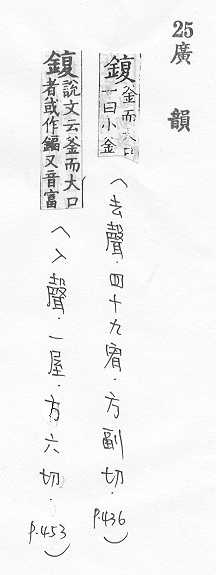 25
廣韻
鍑 釜而大口
一曰小釜
(去聲.四十九宥.方副切.
P.436)
鍑 說文云釜而大口
者或作鍢又音富
(入聲.一屋.方六切.
P.453)